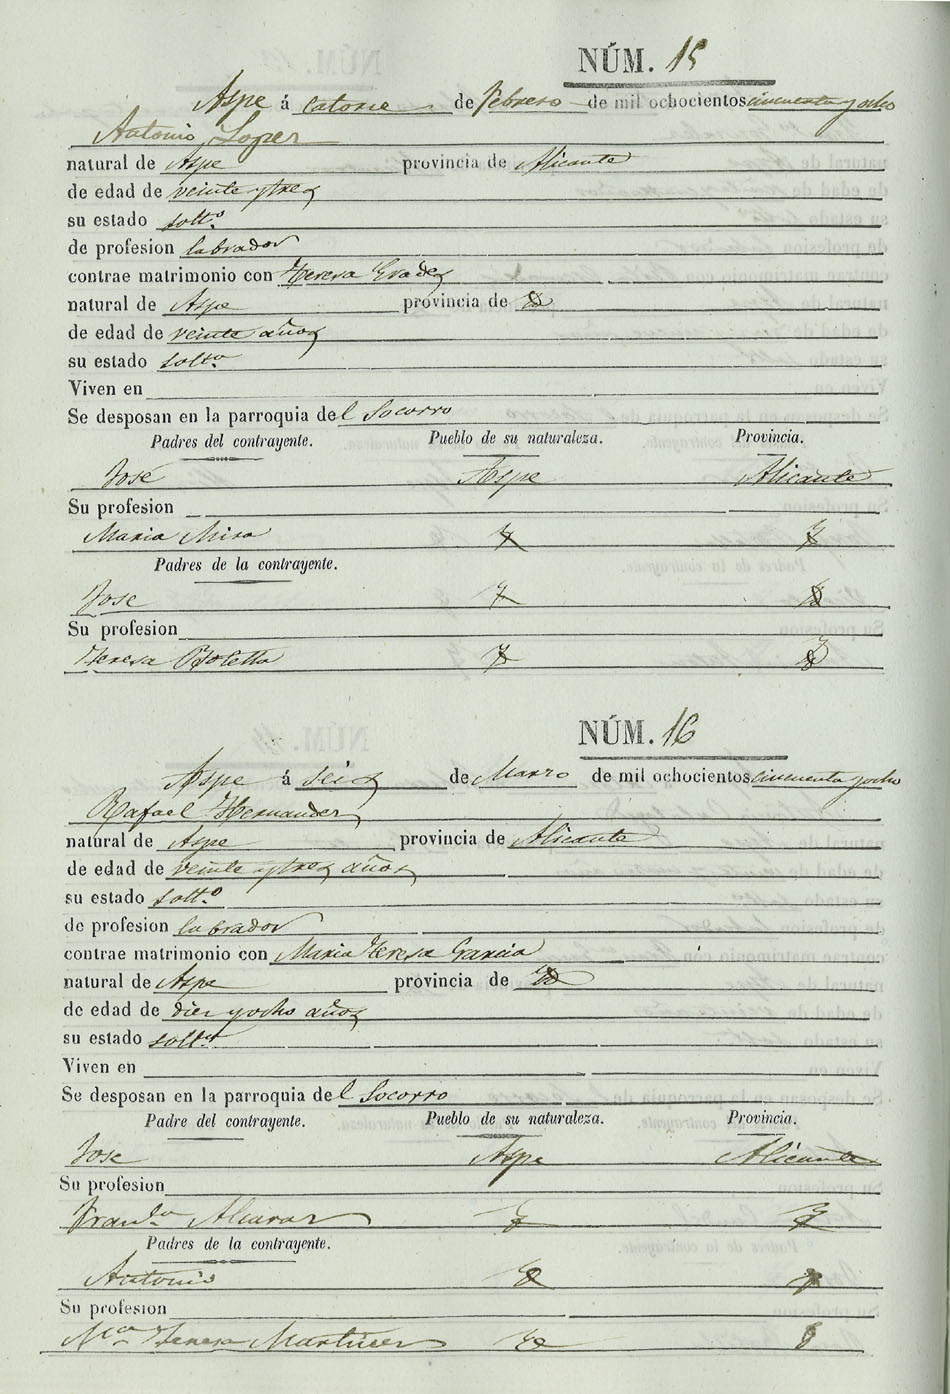 NÚM. 15
Aspe á catorse de Febrero de mil ochocientos cincuenta y ocho
Antonio Lopez
natural de Aspe provincia de Alicante
de edad de veinte y tres
su estado soltº
de profesion labrador
contrae matrimonio con Teresa Gradez
natural de Aspe provincia de
de edad de veinte años
su estado soltª
Viven en
Se desposan en la parroquia del Socorro
Padres del contrayente. Pueblo de su naturaleza. Provincia.
José Aspe Alicante
Su profesion
Maria Mira
Padres de la contrayente.
Jose
Su profesion
Teresa
NÚM. 16
Aspe á seis de Marzo de mil ochocientos cincuenta y ocho
Rafael Hernandez
natural de Aspe provincia de Alicante
de edad de veinte y tres años
su estado soltº
de profesion labrador
contrae matrimonio con Maria Teresa Garcia
natural de Aspe provincia de
de edad de diez y ocho años
su estado soltª
Viven en
Se desposan en la parroquia del Socorro
Padre del contrayente. Pueblo de su naturaleza. Provincia.
Jose Aspe Alicante
Su profesion
Franca Alcaraz
Padres de la contrayente.
Antonio
Su profesion
Mª Teresa Martinez